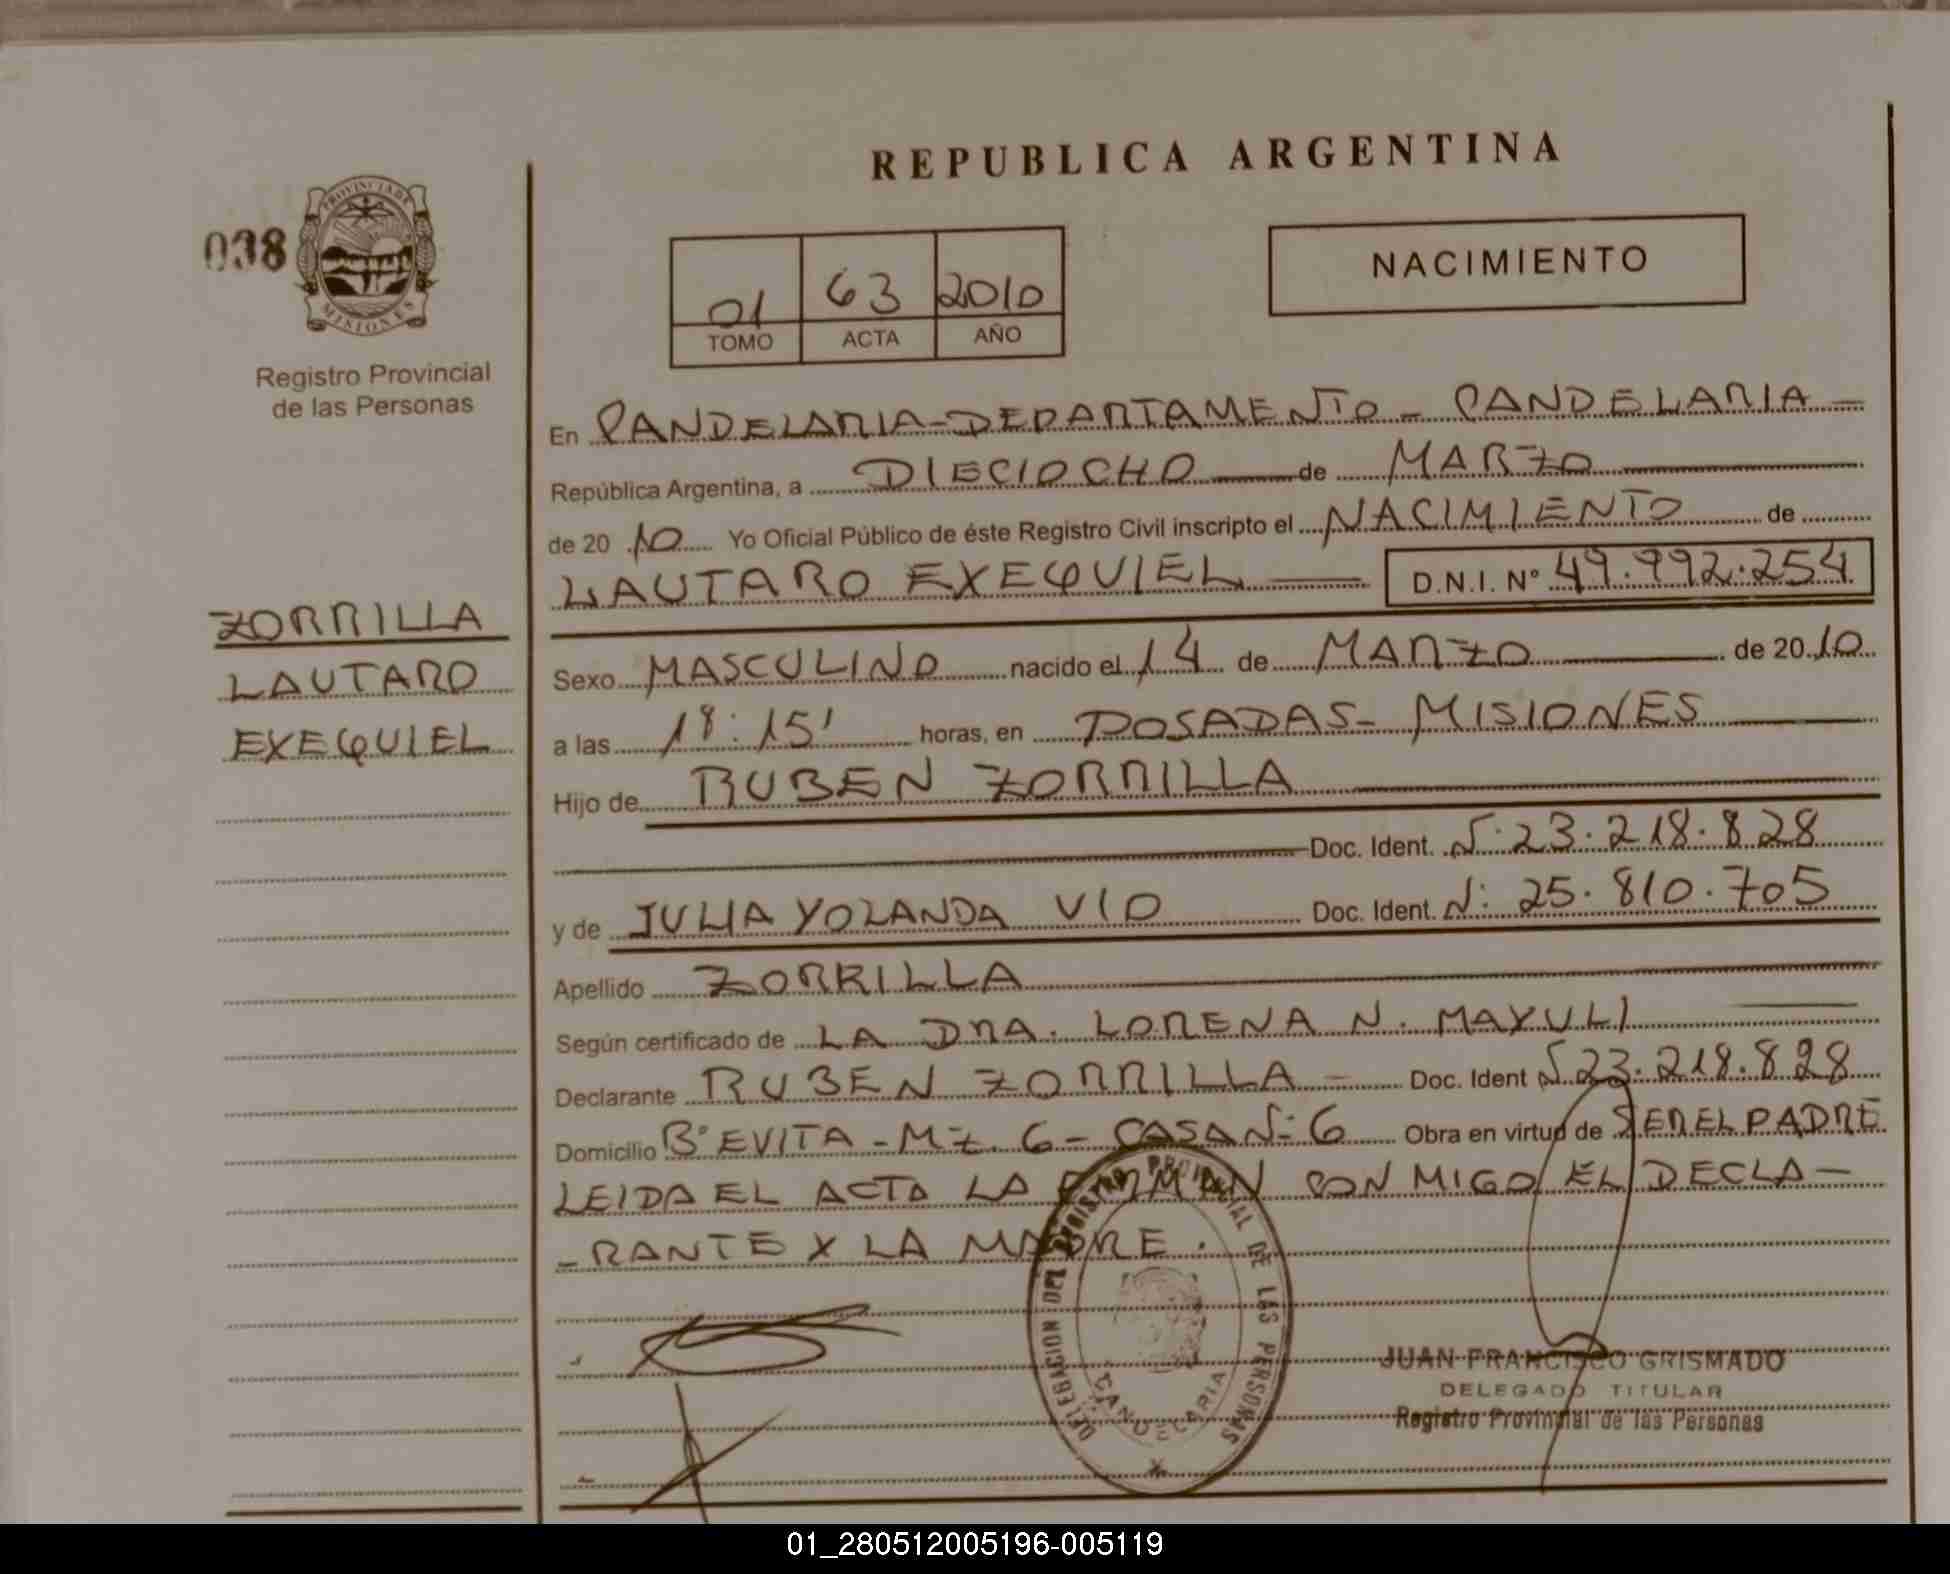 REPUBLICA ARGENTINA
038
PROVINCIA DE
MISIONES
Registro Provincial
de las Personas
01 63 2010
TOMO ACTA AÑO
NACIMIENTO
En CANDELARIA-DEPARTAMENTO - CANDELARIA -
República Argentina, a DIECIOCHO de MARZO
de 20 10 Yo Oficial Público de éste Registro Civil inscripto el NACIMIENTO de
LAUTARO EXEQUIEL D.N.I. Nº 49.992.254
ZORRILLA
LAUTARO
EXEQUIEL
Sexo MASCULINO nacido el 14 de MARZO de 20 10
a las 18:15' horas, en POSADAS - MISIONES
Hijo de RUBEN ZORRILLA
Doc. Ident. N: 23.218.828
y de JULIA YOLANDA VIO Doc. Ident. N: 25.810.705
Apellido ZORRILLA
Según certificado de LA DRA. LORENA N. MAYULI
Declarante RUBEN ZORRILLA - Doc. Ident N 23.218.828
Domicilio Bº EVITA - Mz. 6 - CASA N: 6 Obra en virtud de SER EL PADRE
LEIDA EL ACTA LA FIRMAN CON MIGO EL DECLA-
-RANTE Y LA MADRE.
DELEGACION DEL REGISTRO PROVINCIAL DE LAS PERSONAS
CANDELARIA
JUAN FRANCISCO GRISMADO
DELEGADO TITULAR
Registro Provincial de las Personas
01_280512005196-005119